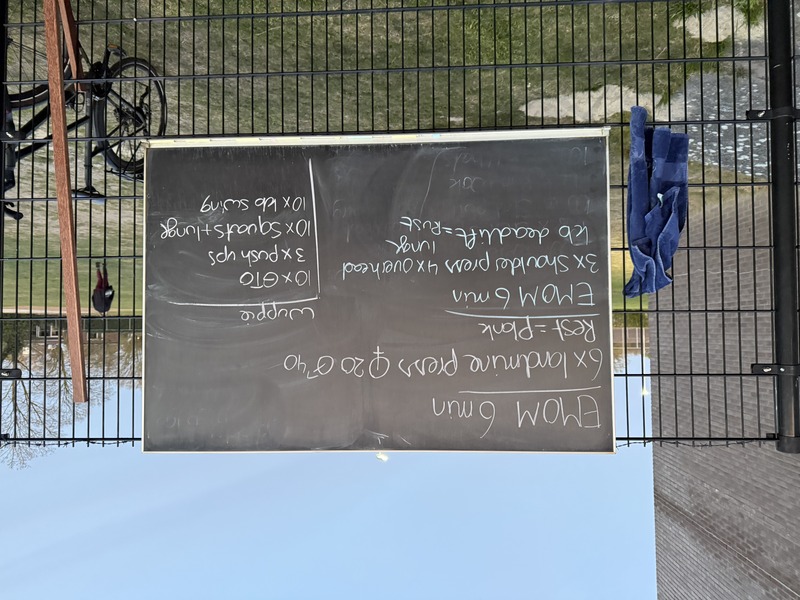 EMOM 6 min
6x landmine press ♀ 20 ♂ 40
Rest = Plank
EMOM 6 min
3x Shoulder press 4x overhead
lunge
kb deadlift = Rust
Wuppie
10x GTO
3x push ups
10x Squats + lunge
10x kb swing